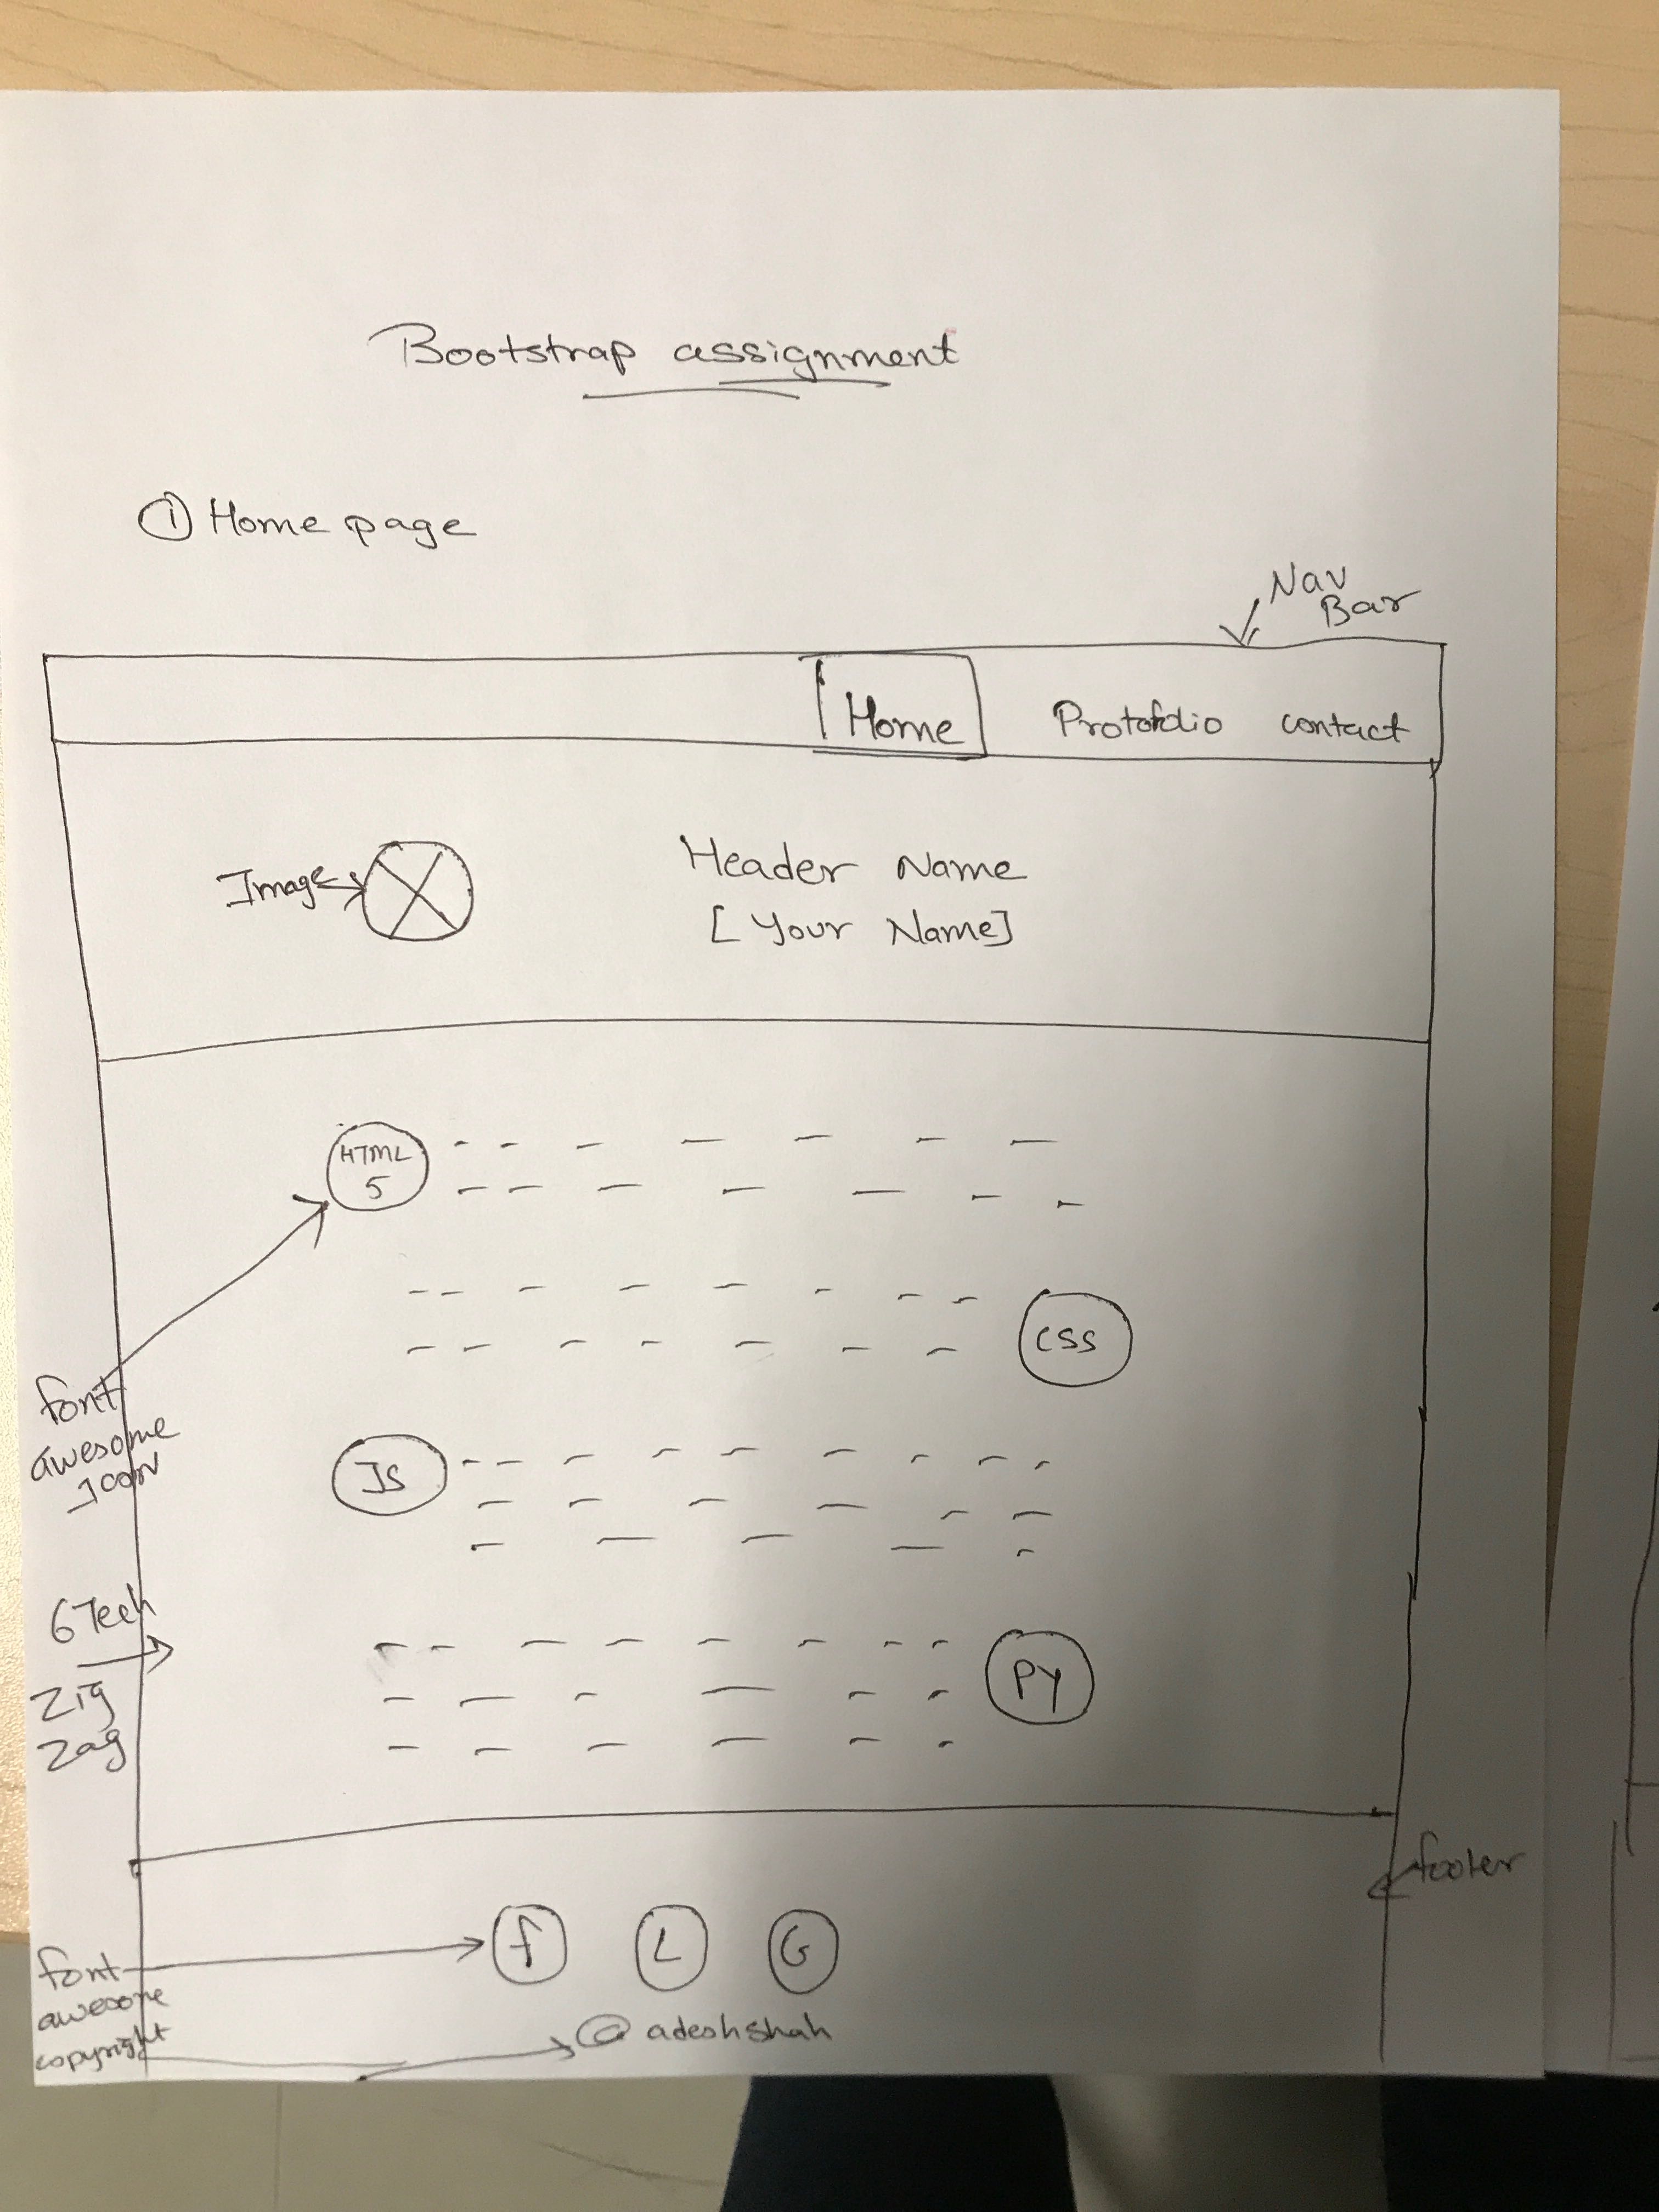 Bootstrap assignment
① Home page
Nav
Bar
Home Protofolio contact
Image
Header Name
[Your Name]
HTML
5
CSS
font
awesome
Icon
JS
6 Tech
Zig
Zag
PY
footer
f L G
font
awesome
copyright
@ adeshshah